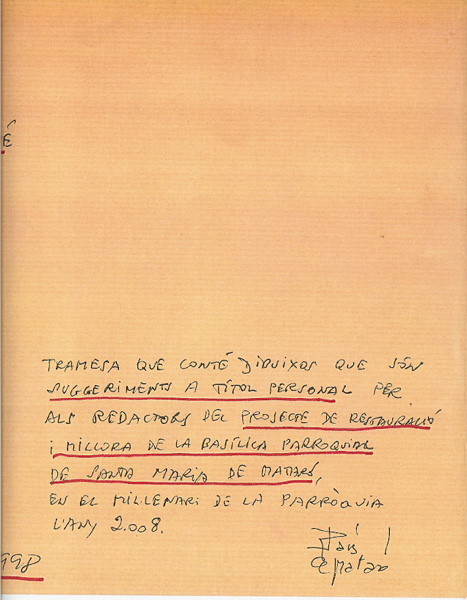 É
TRAMESA QUE CONTÉ DIBUIXOS QUE SÓN
SUGGERIMENTS A TÍTOL PERSONAL PER
ALS REDACTORS DEL PROJECTE DE RESTAURACIÓ
i MILLORA DE LA BASÍLICA PARROQUIAL
DE SANTA MARIA DE MATARÓ,
EN EL MIL·LENARI DE LA PARRÒQUIA
L'ANY 2.008.
de Mataró
998